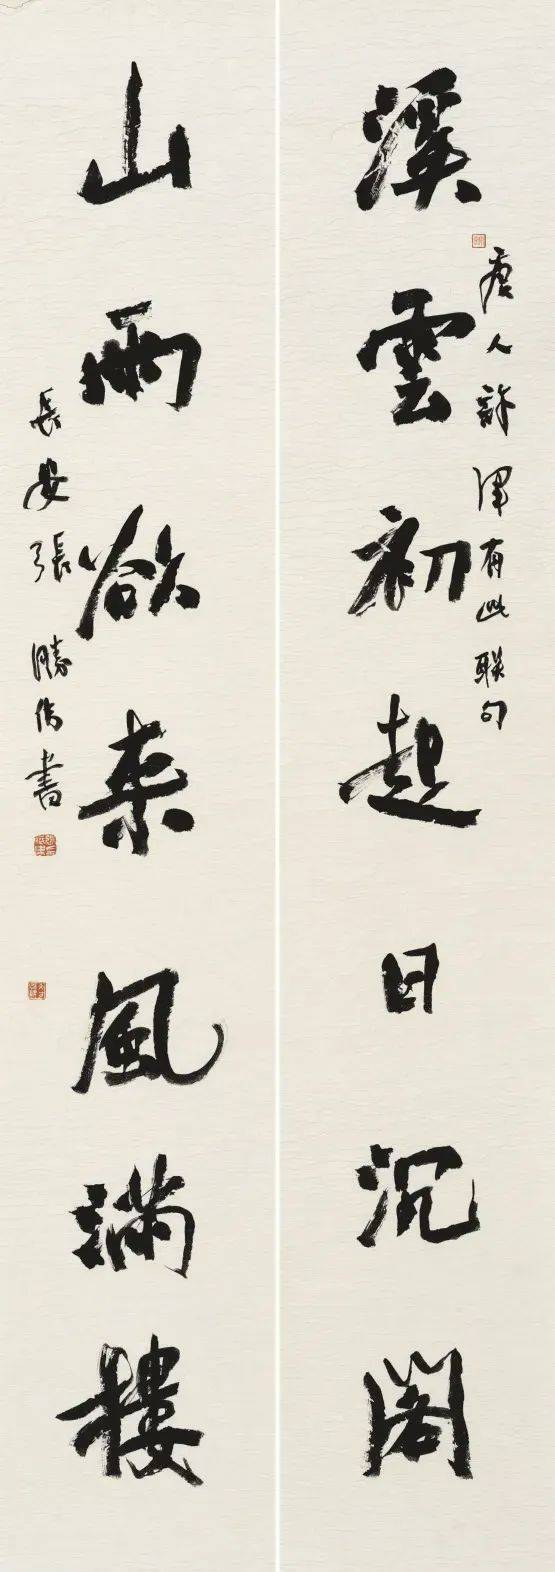 溪雲初起日沉閣
唐人許渾有此联句
山雨欲来風滿樓
長安張勝偉書